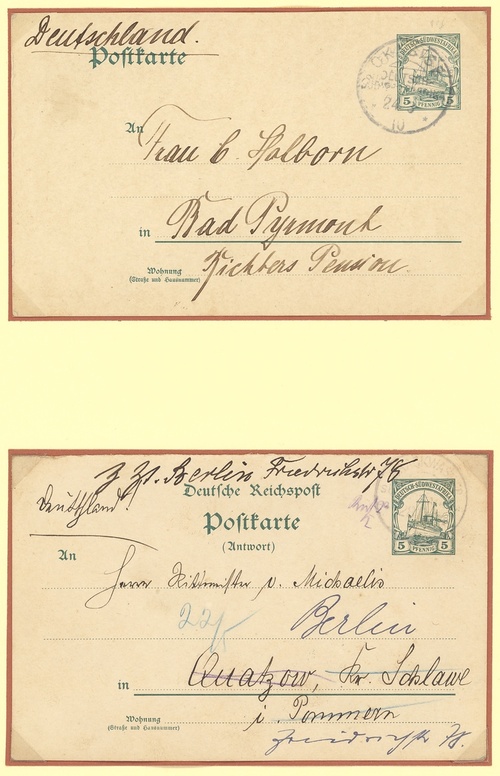 Deutschland.
Postkarte
DEUTSCH-SÜDWESTAFRIKA
5 PFENNIG 5
10
An Frau C. Holborn
in Bad Pyrmont
Richters Pension.
Wohnung
(Straße und Hausnummer)
z. Zt. Berlin Friedrichstr 78
Deutschland!
Deutsche Reichspost
Postkarte
(Antwort)
DEUTSCH-SÜDWESTAFRIKA
5 PFENNIG 5
An
Herrn Rittmeister v. Michaelis
22/5
Berlin
in Quatzow, Kr. Schlawe
i. Pommern
Wohnung
(Straße und Hausnummer)
Friedrichstr 78.